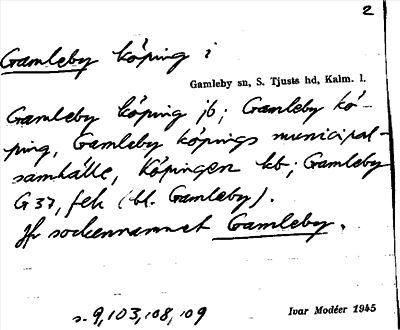 2
Gamleby köping i
Gamleby sn, S. Tjusts hd, Kalm. l.
Gamleby köping jb; Gamleby kö-
ping, Gamleby köpings municipal-
samhälle, Köpingen kb; Gamleby
G 37, fek (bl. Gamleby).
Jfr sockennamnet Gamleby.
s. 9, 103, 108, 109
Ivar Modéer 1945